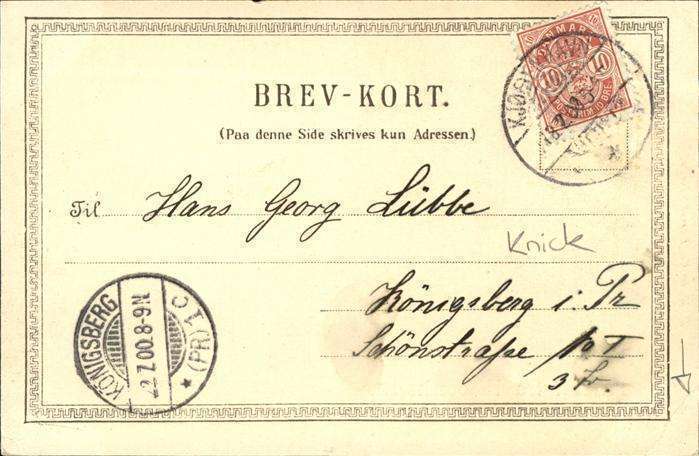 DANMARK
10 10
KJØBENHAVN
BREV-KORT.
(Paa denne Side skrives kun Adressen.)
Til Hans Georg Lübbe
Knick
Königsberg i. Pr
Schönstraße
KÖNIGSBERG
22.7.00.8-9N
* (PR) 1 C